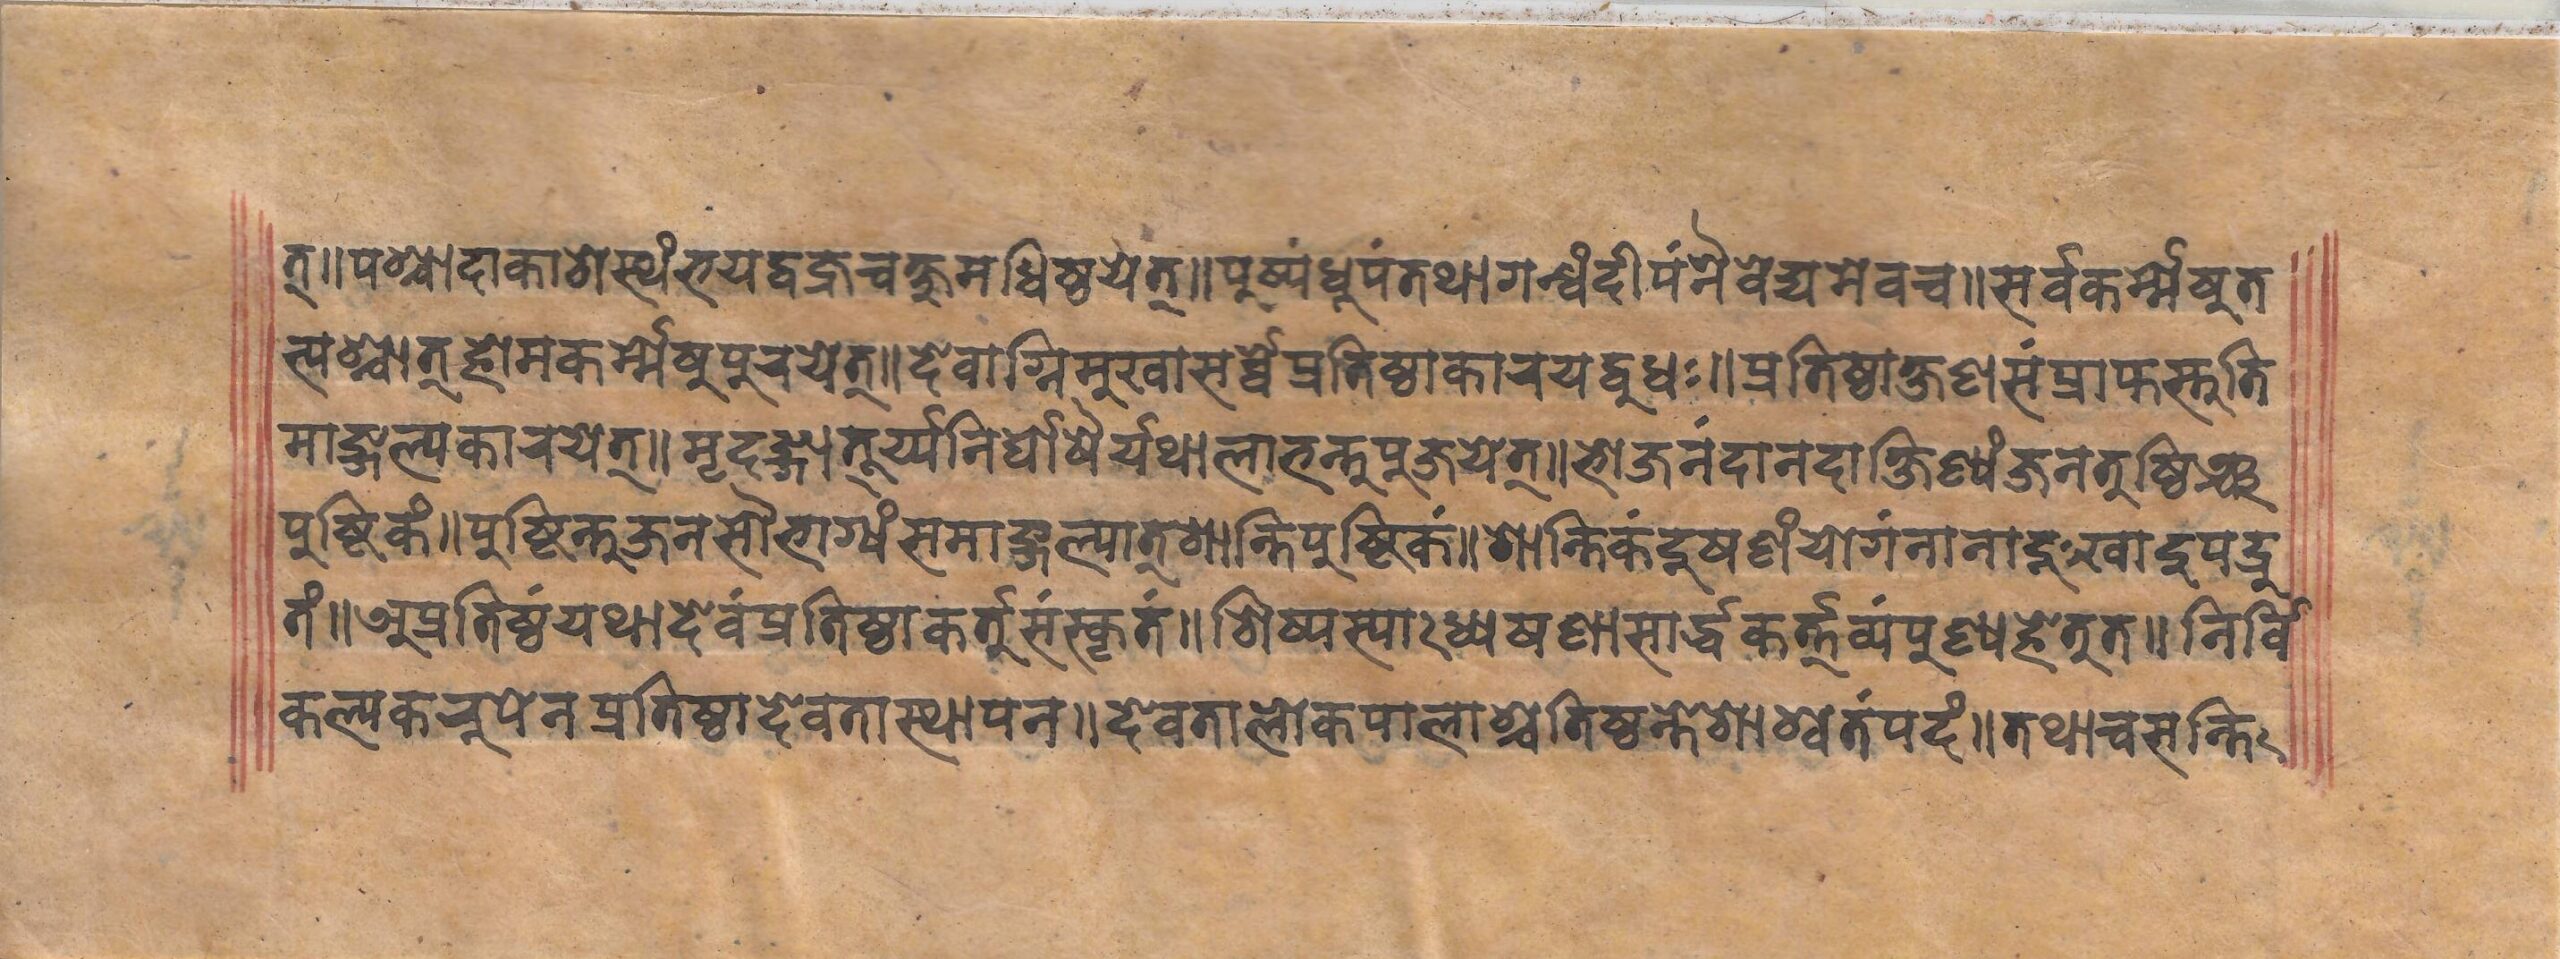 त्॥पश्चादाकाशेस्थंरुयद्वज्रचक्षुमधिष्ठयेत्॥पुष्पंधुपंतथागन्धंदीपंनैवेद्यमेवच॥सर्वकर्म्मेषुत
त्पश्चात्होमकर्म्मेषुपुरयेत्॥देवाग्निमुखासर्व्वेप्रतिष्ठाकारयद्बुधः॥प्रतिष्ठाक्षणसंप्राप्तस्तुति
माङ्गल्यकारयेत्॥मृदङ्गातूर्य्यनिर्घोषैर्यथालाभन्तुपुजयेत्॥भोजनंदानदाक्षिण्यंजनतुष्ठिञ्च
पुष्टिकं॥पुष्टिन्तुजनसौभाग्यंसमाङ्गल्यात्शान्तिपुष्टिकं॥शान्तिकंदुषणंयोगंनानादुःखादुपद्रु
तं॥अप्रतिष्ठंयथादेवंप्रतिष्ठाकर्तुसंस्कृतं॥शिष्यस्याऽध्यषणासार्द्धकर्त्तव्यंपुण्यहेतुत॥निर्वि
कल्पकरुपेनप्रतिष्ठादेवतास्थापन॥देवतालोकपालाश्चतिष्ठन्तेशाश्वतंपदं॥तथाचसन्तिः